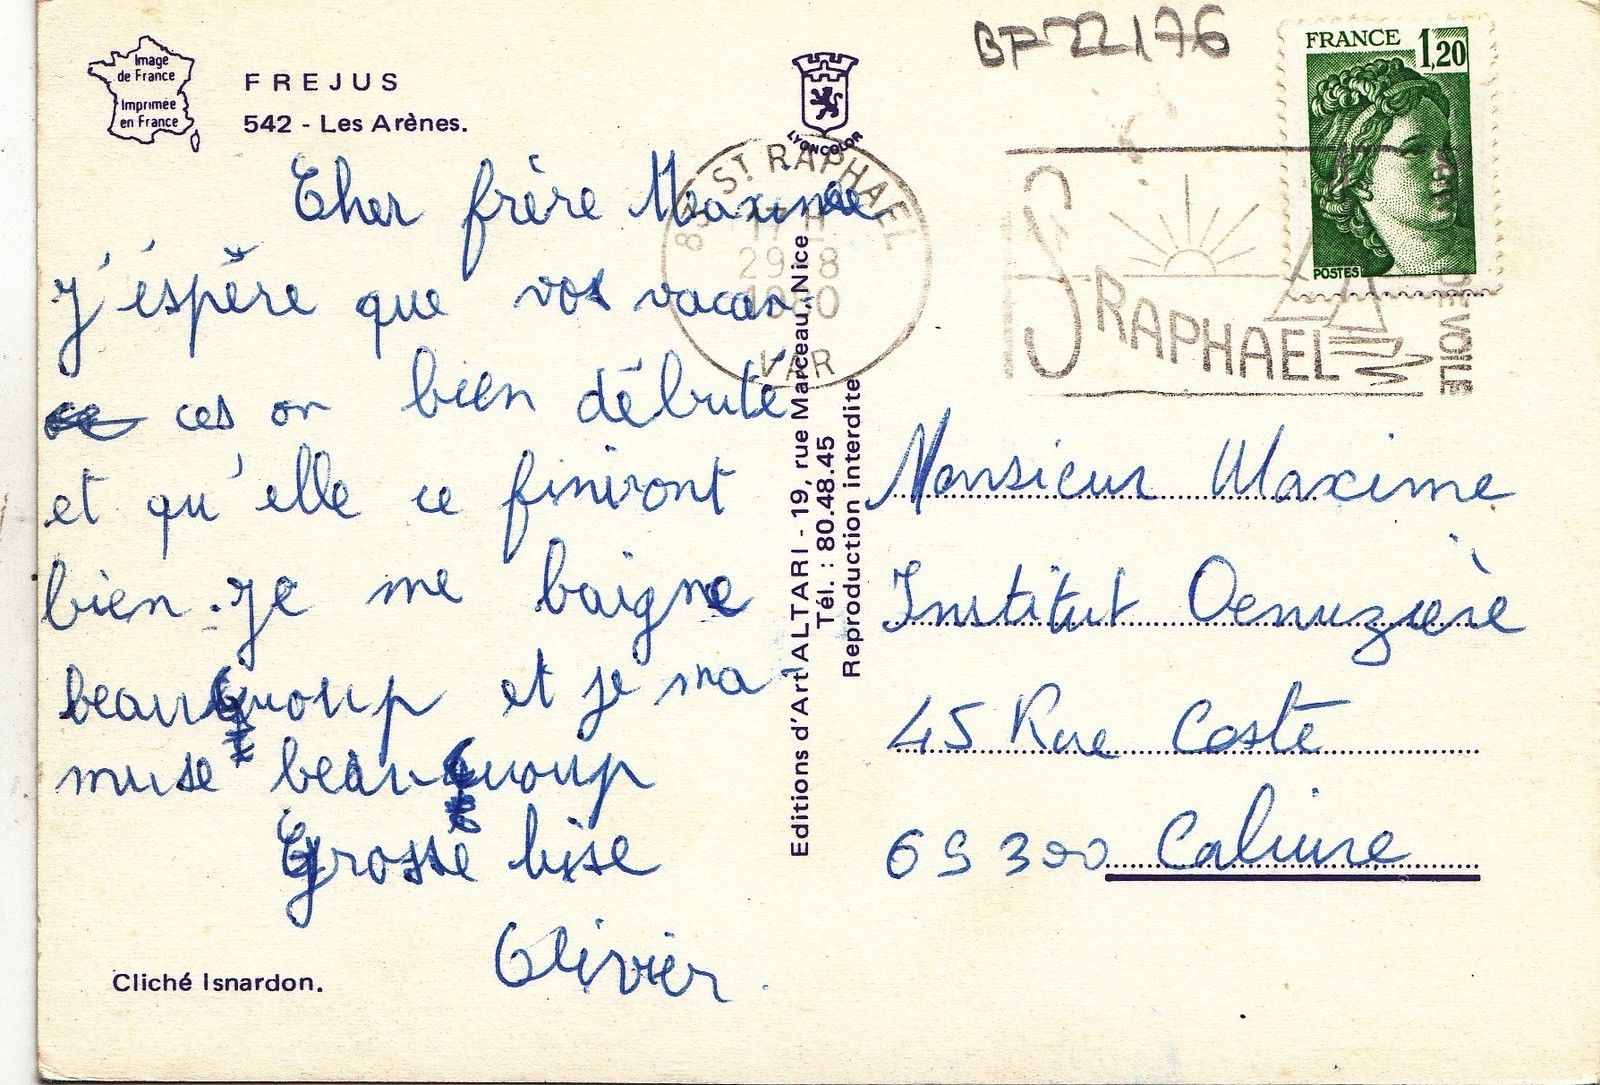 Image
de France
Imprimée
en France
FREJUS
542 - Les Arènes.
Cher frère Maxime
J'éspère que vos vacan-
ces on bien débuté
et qu'elle ce finiront
bien. Je me baigne
beaucuoup et je ma-
muse beaucuoup
Grosse bise
Olivier.
Cliché Isnardon.
LYONCOLOR
Editions d'Art ALTARI - 19, rue Marceau, Nice
Tél. : 80.48.45
Reproduction interdite
BF22176
FRANCE 1,20
POSTES
ST RAPHAEL
29-8
1980
VAR
ST RAPHAEL
VOILE
Monsieur Maxime
Institut
45 Rue Coste
69300 Caluire